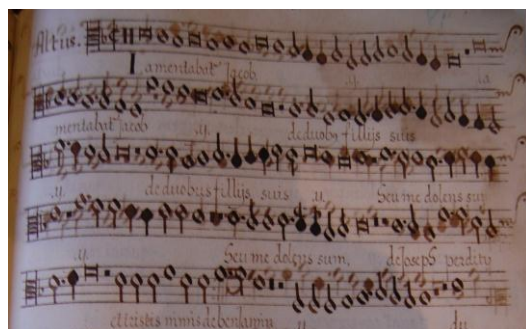 Altus.
Lamentabat Jacob .ij. la
mentabat Jacob .ij. de duobus fillijs suis
.ij. de duobus fillijs suis .ij. heu me dolens sum
.ij. heu me dolens sum, de Joseph perdito
et tristis nimis de beniamin .ij. du